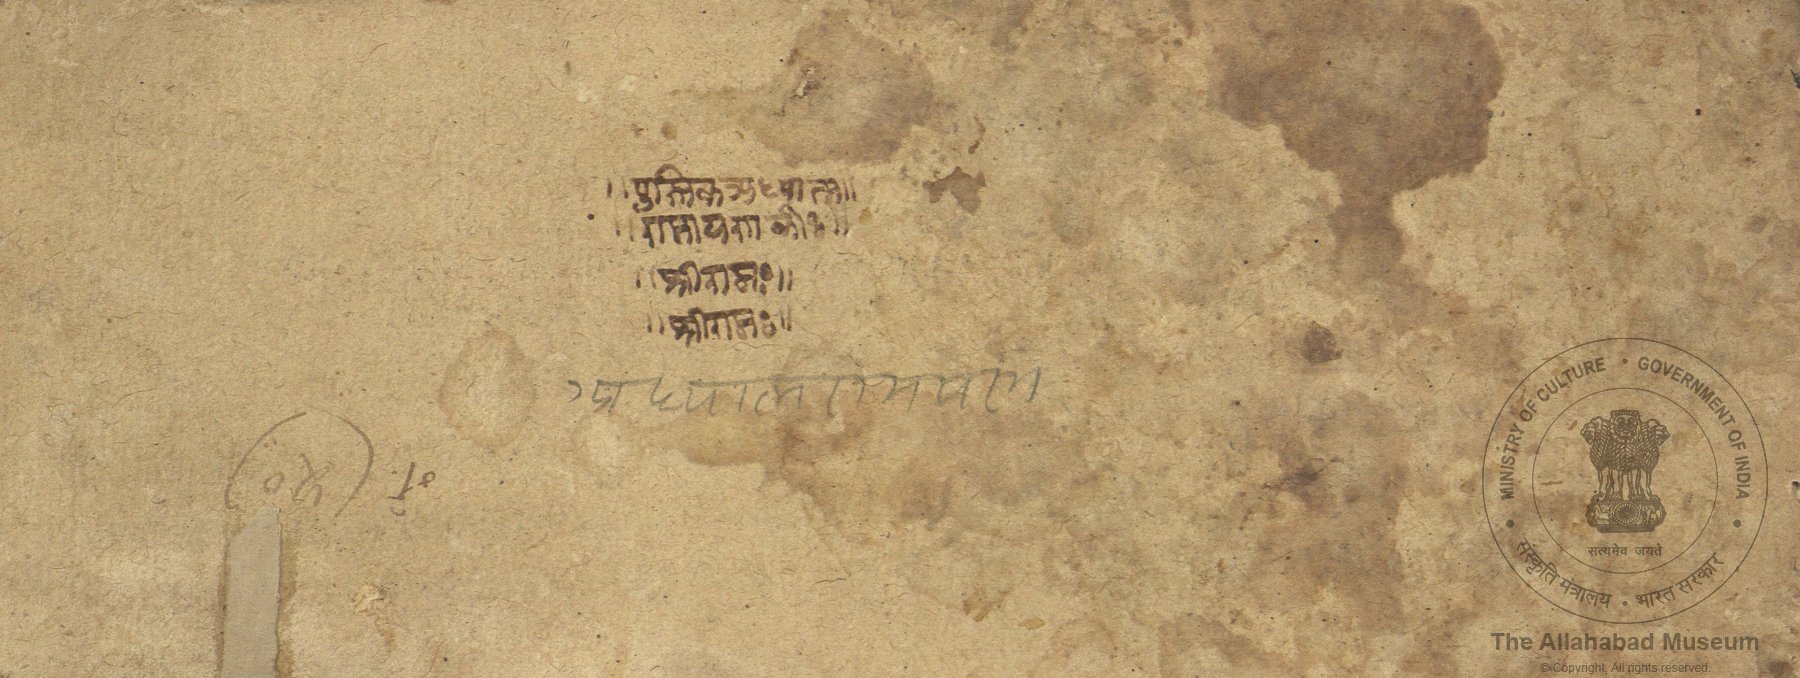 ॥पुस्तिकअध्यात्म॥
॥रामायणकीः॥
॥श्रीरामः॥
॥श्रीरामः॥
अध्यात्म रामायण
नं. (५०)
MINISTRY OF CULTURE • GOVERNMENT OF INDIA
सत्यमेव जयते
संस्कृति मंत्रालय • भारत सरकार
The Allahabad Museum
© Copyright, All rights reserved.